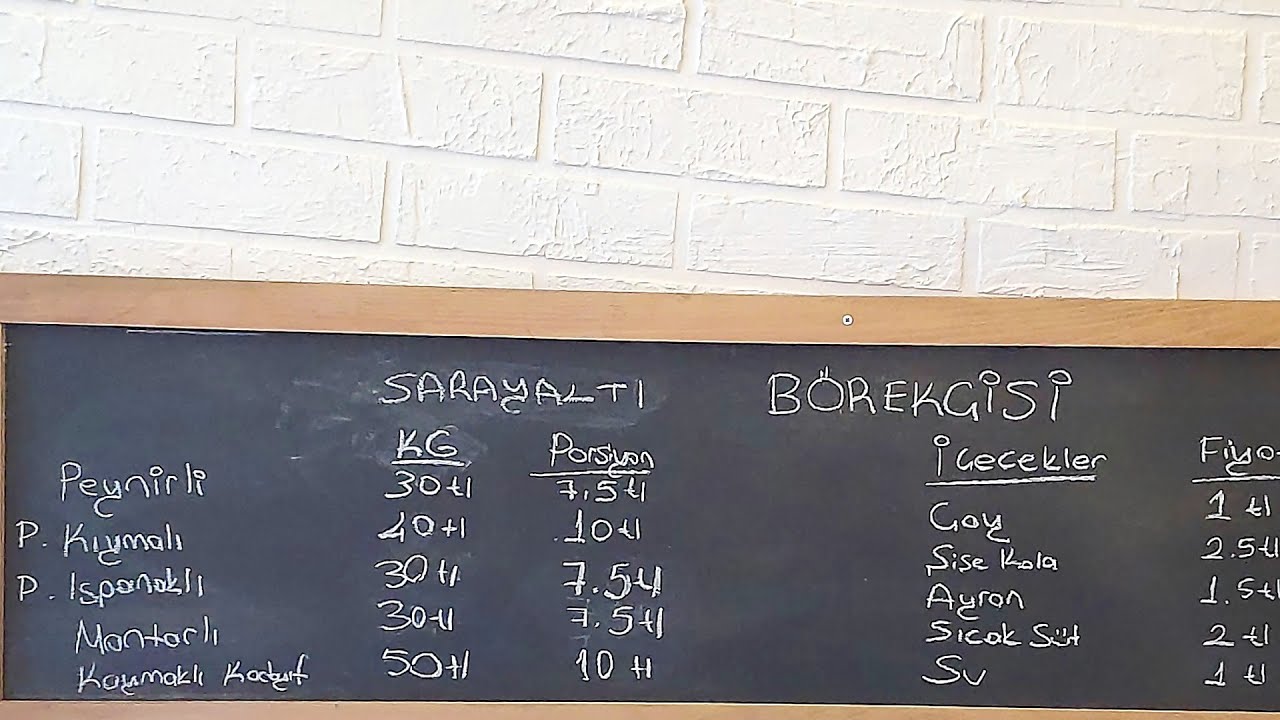 SARAYALTI BÖREKGİSİ
KG Porsiyon
Peynirli 30 tl 7.5 tl
P. Kıymalı 40 tl 10 tl
P. Ispanaklı 30 tl 7.5 tl
Mantarlı 30 tl 7.5 tl
Kaymaklı Kadayıf 50 tl 10 tl
İçecekler Fiya
Çay 1 tl
Şişe Kola 2.5 tl
Ayran 1.5 tl
Sıcak Süt 2 tl
Su 1 tl